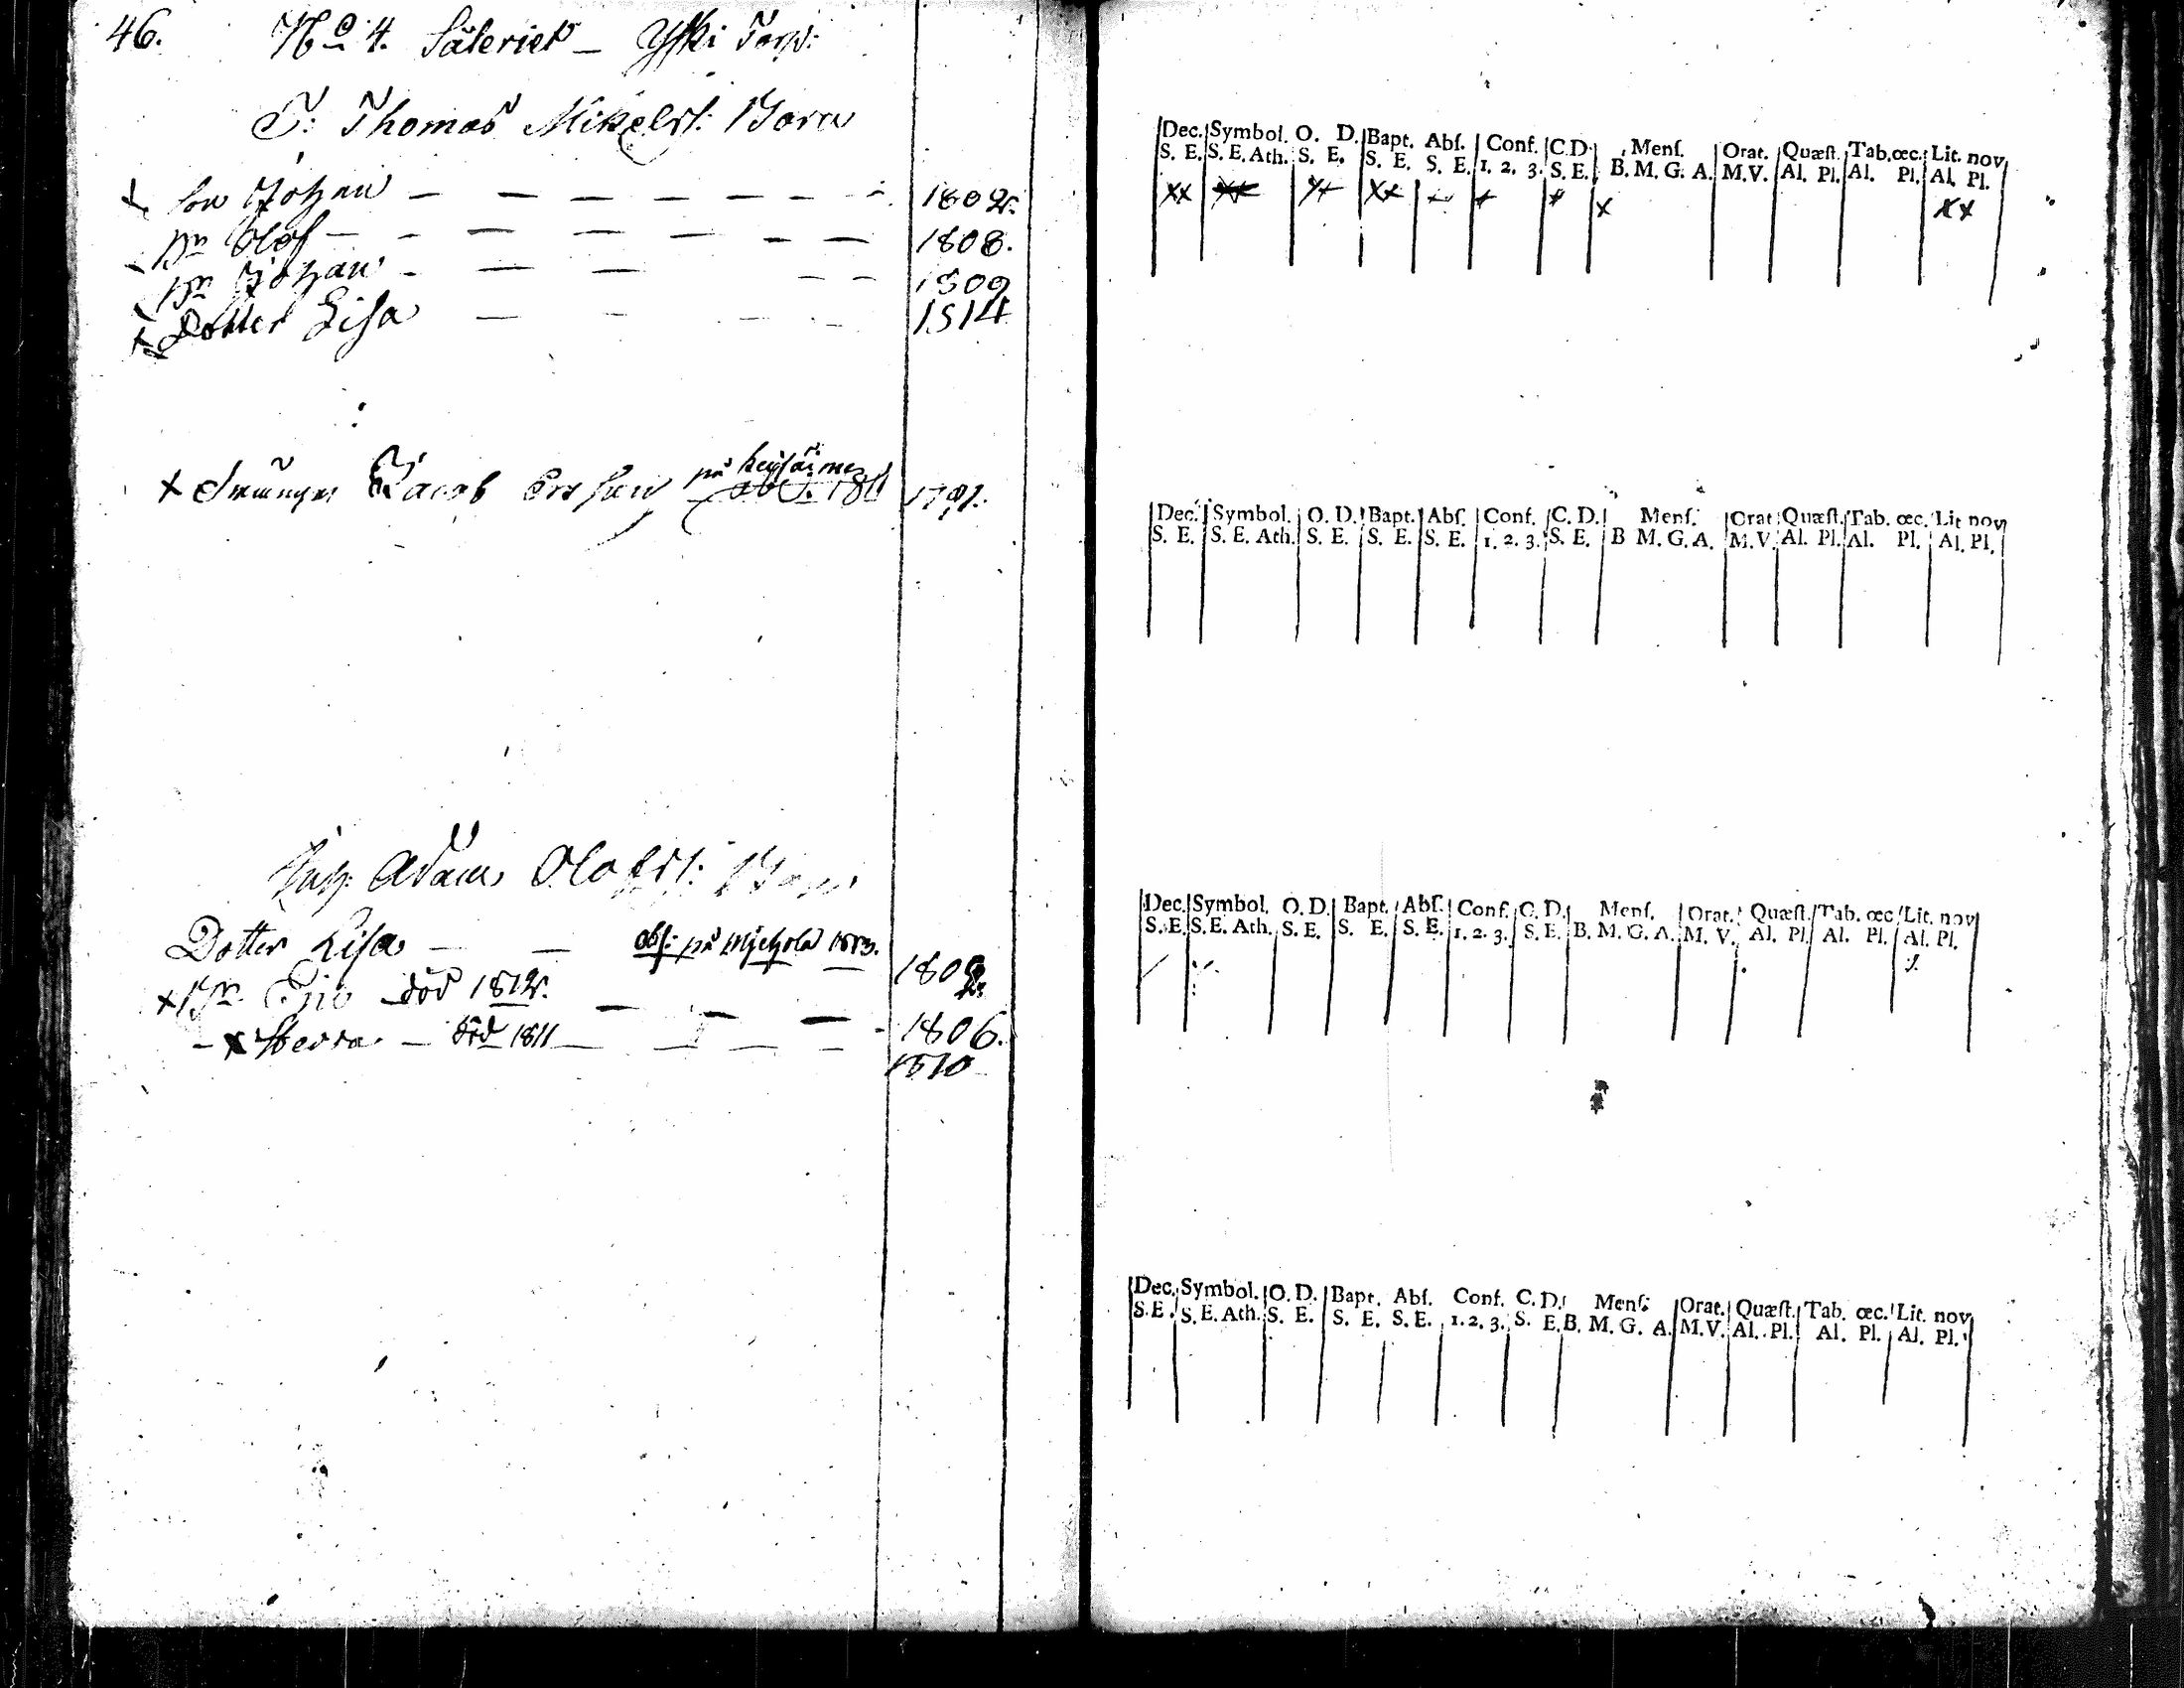 46. No 4. Säteriet – Yski Torp:
T: Thomas Mikelss: Barn
x Son Johan – – – – – – – 1802.
Dn Olof – – – – – – – 1808.
Dn Johan – – – – – 1809
x Dotter Lisa – – – – 1814
på
x Jacob Ersson 1811 1791.
Adam Olofss: Barn
Dotter Lisa – – obs: på 1813. 1802.
x Dn död 1812. – – – 1806.
– x Hedda – död 1811 – – – – 1810
Dec. Symbol. O. D. Bapt. Abs. Conf. C.D. Mens. Orat. Quæst. Tab. œc. Lit. nov
S. E. S. E. Ath. S. E. S. E. S. E. 1. 2. 3. S. E. B. M. G. A. M.V. Al. Pl. Al. Pl. Al. Pl.
xx xx xx xx x x x x xx
Dec. Symbol. O. D. Bapt. Abs. Conf. C. D. Mens. Orat Quæst. Tab. œc. Lit nov
S. E. S. E. Ath. S. E. S. E. S. E. 1. 2. 3. S. E. B M. G. A. M.V. Al. Pl. Al. Pl. Al. Pl.
Dec. Symbol. O. D. Bapt. Abs. Conf. C. D. Mens. Orat. Quæst. Tab. œc Lit. nov
S. E. S. E. Ath. S. E. S. E. S. E. 1. 2. 3. S. E. B. M. G. A. M. V. Al. Pl. Al. Pl. Al. Pl.
Dec. Symbol. O. D. Bapt. Abs. Conf. C. D. Mens. Orat. Quæst. Tab. œc. Lit. nov
S. E. S. E. Ath. S. E. S. E. S. E. 1. 2. 3. S. E. B. M. G. A. M.V. Al. Pl. Al. Pl. Al. Pl.